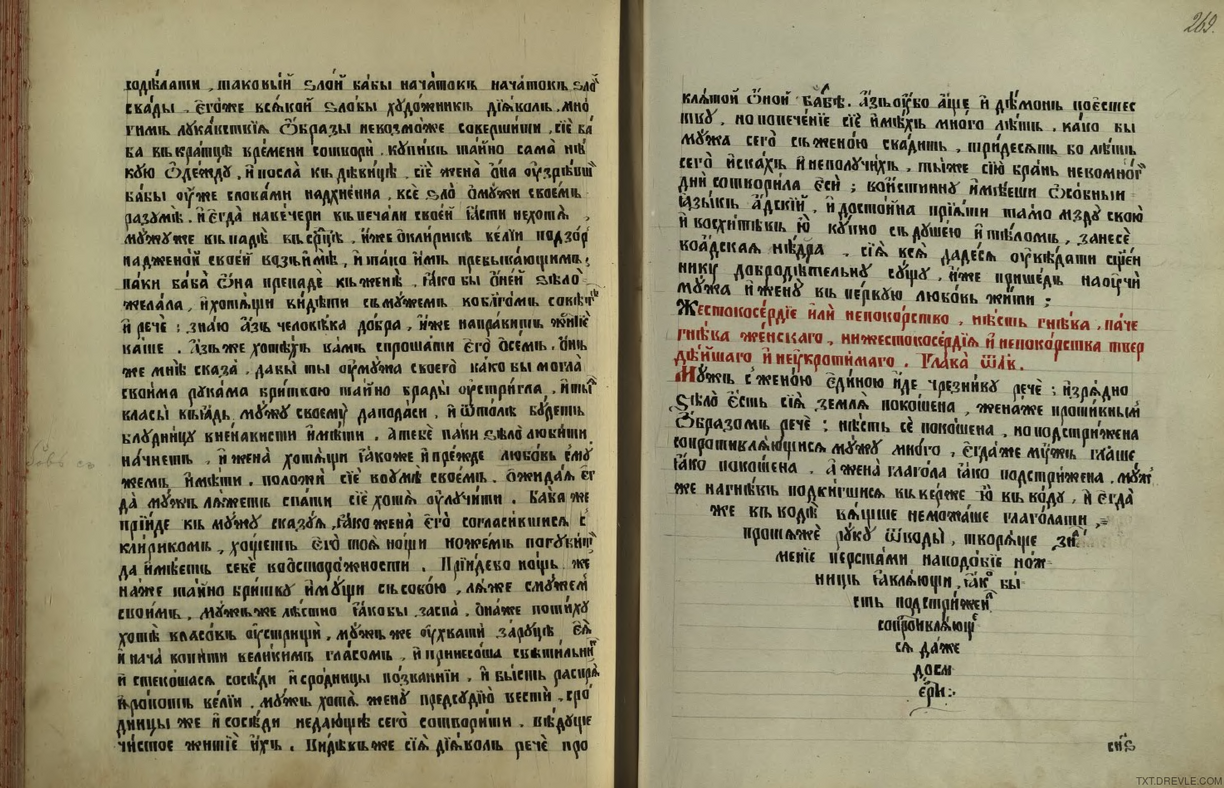 содѣлати , таковый ѕлой бабы начатокъ начатокъ ѕло
свады . Єгоже всякой ѕлобы художникъ діаволъ . мно
гимъ лукавствія Ѡбразы невозможе совершити . сіе ба
ба въкратцѣ времени сотвори . купивъ тайно сама нѣ
кую Ѡдежду , и посла къ дѣвицѣ . сіе жена Она оузрѣвши
бабы оуже словами надхненна , все ѕло Омужи своемъ
разумѣ . и єгда навечери въ печали своей ꙗсти нехотѧ ,
мужуже къ падѣ
паки баба Ѡна припаде къ женѣ , ꙗкобы Оней ѕѣло
желала , и хотѧщи видѣти съмужемъ воблгомъ совѣтѣ
и рече : знаю Азъ человѣка добра , иже направитъ житіе
ваше . Азъ же хотѣхъ вамъ спрошати єго Осемъ . Онъ
же мнѣ сказа . дабы ты оумужа своего како бы могла
своима рукама бритвою тайно брады оустригла , и ты
власы въꙗдь мужу своему даподаси , и Ѡтолѣ будетъ
блудницу вненависти имѣти . Атебе паки ѕѣло любити
начнетъ , и жена хотѧщи ꙗкоже и прежде любовь сму
жемъ имѣти . положи сіе воумѣ своемъ . Ожидаѧ єг
да мужъ лѧжетъ спати сіе хотѧ оулучити . Баба же
пріиде къ мужу сказуѧ , ꙗко жена єго согласившисѧ с
клирикомъ , хощетъ єго тоѧ нощи ножемъ погубити
да имѣетъ себѣ . Пріидево нощь , же
наже тайно бритву имущи съсобою , лѧже смужем
своимъ , мужъже лѣстно ꙗкобы заспа , Онаже потиху
хотѣ власовъ оустрищи , мужъ же оухвати заруцѣ єѧ
и нача вопити великимъ гласомъ , и принесоша свѣтильни
и стекошасѧ сосѣди и сродницы позванніи , и бысть распрѧ
и ропотъ велій . мужъ хотѧ жену предсудію вести . сро
дницы же и сосѣди недающіе сего сотворити . вѣдуще
чистое житіе ихъ . Видѣвъже сіѧ діаволъ рече про
269.
клѧтой Ѡной бабѣ . Азъ оубо аще и дѣмонъ
нику , но попеченіе сіе имѣхъ много лѣтъ . како бы
мужа сего съженою свадить , тридесѧть бо лѣтъ
сего искахъ и неполучихъ , тыже сію брань некомног
дни сотворила єси ; воистинну имѣеши Ѡсобныи
ꙗзыкъ адскій , и достойна пріѧти тамо мзду свою
и восхитивъ ю купно съдушею и тѣломъ , занесе
воадскаѧ нѣдра , сіѧ всѧ дадесѧ оувѣдати сщен
нику добродѣтельну сущу , иже пришедъ научи
мужа и жену въ первую любовь жити :
Жестокосердіе или непокорство , нѣсть гнѣва , паче
гнѣва женскаго , нижестокосердіѧ и непокорства твер
дѣйшаго и неукротимаго . Глава ѠЛВ .
Мужъ сженою єдиною иде чрезниву рече : изрѧдно
ѕѣло єсть сіѧ землѧ покошена , женаже противнымъ
Ѡбразомъ рече : нѣсть се покошена , но подстрижена
сопротивлѧющисѧ мужу много . Єгдаже мужъ глаше
ꙗко покошена . а жена глагола ꙗко подстрижена . муж
же нагнѣвъ подвигшисѧ вверже ю въ воду , и єгда
же въ водѣ бѧше неможаше глаголати ,
протѧже руку Ѡводы , творѧше зн
меніе перстами наподобіе нож
ницъ таклѧющи , ꙗко бы
сть подстрижен
сопротивлѧющ
сѧ даже
досм
єрти :